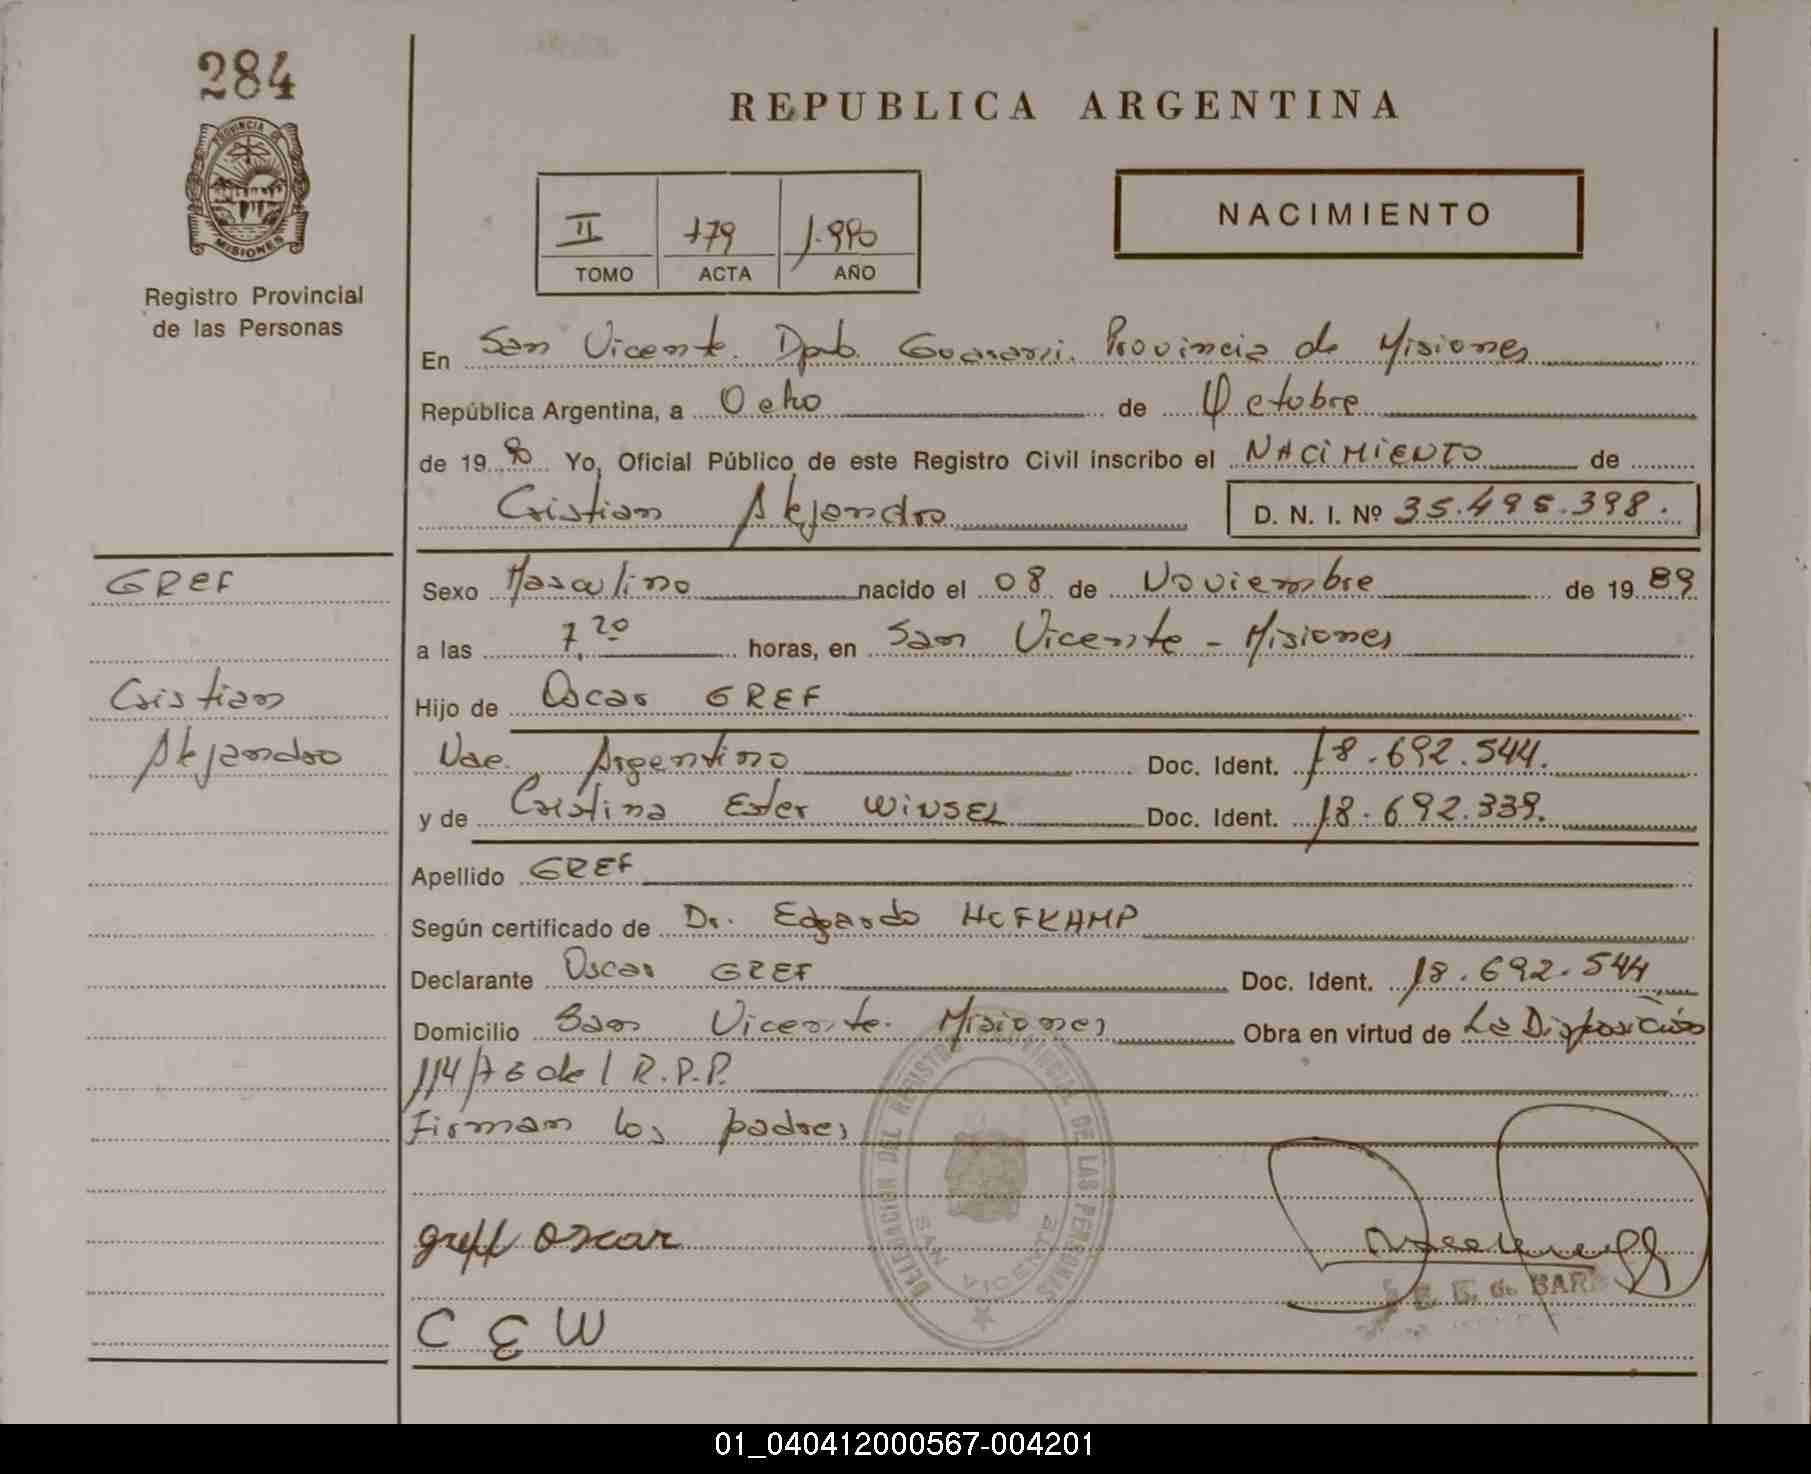 284
REPUBLICA ARGENTINA
PROVINCIA DE
MISIONES
Registro Provincial
de las Personas
II 179 1.990
TOMO ACTA AÑO
NACIMIENTO
En San Vicente. Dpto. Guaraní. Provincia de Misiones
República Argentina, a Ocho de Octubre
de 19 90 Yo, Oficial Público de este Registro Civil inscribo el NACIMIENTO de
Cristian Alejandro D. N. I. Nº 35.495.398.
GREF
Cristian
Alejandro
Sexo Masculino nacido el 08 de Noviembre de 19 89
a las 7,20 horas, en San Vicente - Misiones
Hijo de Oscar GREF
Nac. Argentino Doc. Ident. 18.692.544.
y de Cristina Ester WINSEL Doc. Ident. 18.692.339.
Apellido GREF
Según certificado de Dr. Edgardo HOFKAMP
Declarante Oscar GREF Doc. Ident. 18.692.544
Domicilio San Vicente. Misiones Obra en virtud de La Disposición
114/76 del R.P.P.
Firman los padres
greff oscar
C E W
DELEGACION DEL REGISTRO PROVINCIAL DE LAS PERSONAS
SAN VICENTE
01_040412000567-004201